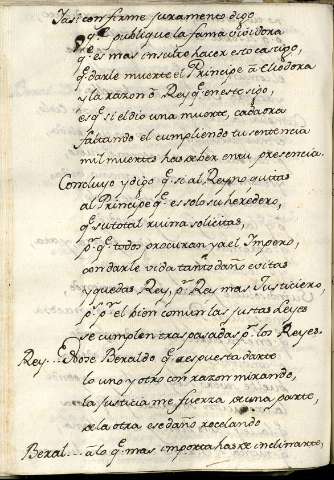 Yasi con firme juramento digo
qᵉ publique la fama voladora
qᵉ es mas insulto hacer este castigo,
qᵉ darle muerte el Principe a Cliodora
y la razon ô Rey qᵉ en esto sigo,
es qᵉ si el dio una muerte, cada ora
faltando el cumpliendo tu sentencia
mil muertes has de ber en tu presencia.
Concluyo y digo qᵉ si al Reyno quitas
al Principe qᵉ es solo su heredero,
qᵉ su total ruina solicitas,
pʳ qᵉ todos procuran ya el Imperio,
con darle vida tantoˢ daños evitas
y quedas Rey, pʳ Rey mas Justiciero,
pˢ pʳ el bien comun las justas Leyes
se cumplen tras pasadas pʳ los Reyes.
Rey... No se Beraldo qᵉ respuesta darte
lo uno y otro con razon mirando,
la justicia me fuerza de una parte,
de la otra ese daño recelando
Beral... â lo qᵉ mas importa has de inclinarte,